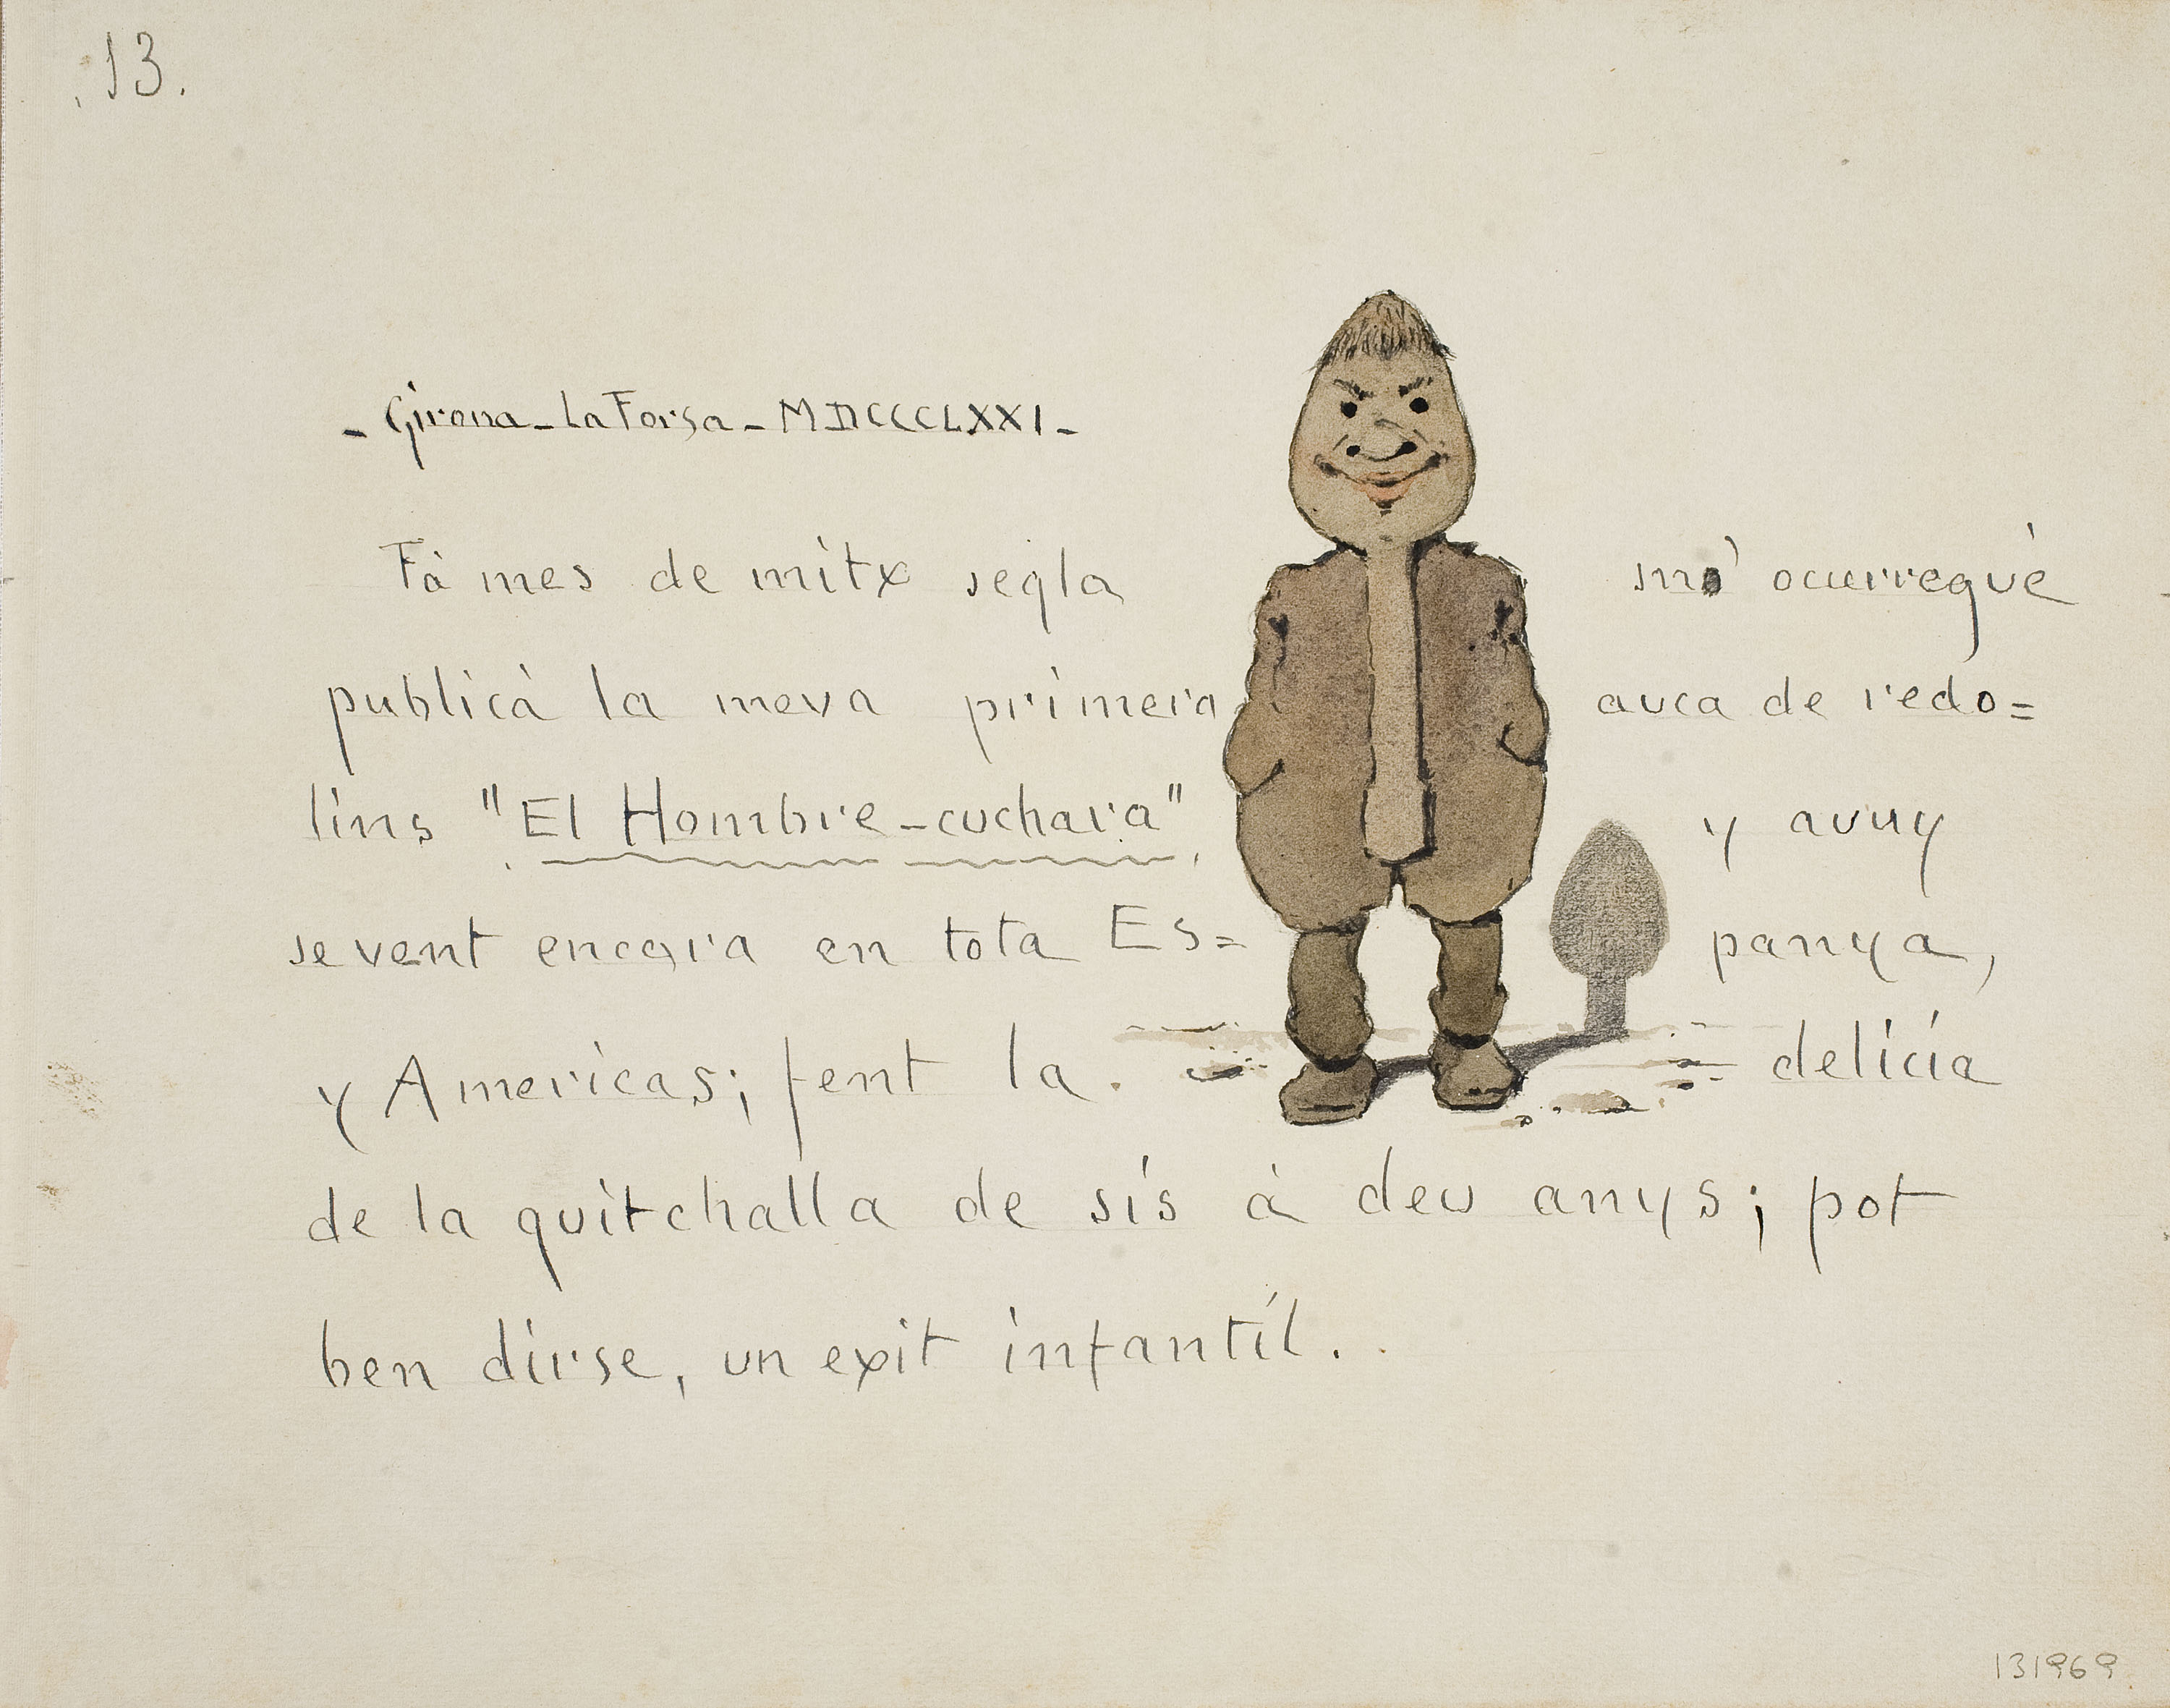 .13.
- Girona - La Forsa - MDCCCLXXI -
Fà mes de mitx segla m' ocurregué
publicà la meva primera auca de redo=
lins "El Hombre-cuchara" y avuy
se vent encara en tota Es= panya,
y Americas; fent la delicia
de la quitchalla de sis à deu anys; pot
ben dirse, un exit infantíl.
131969